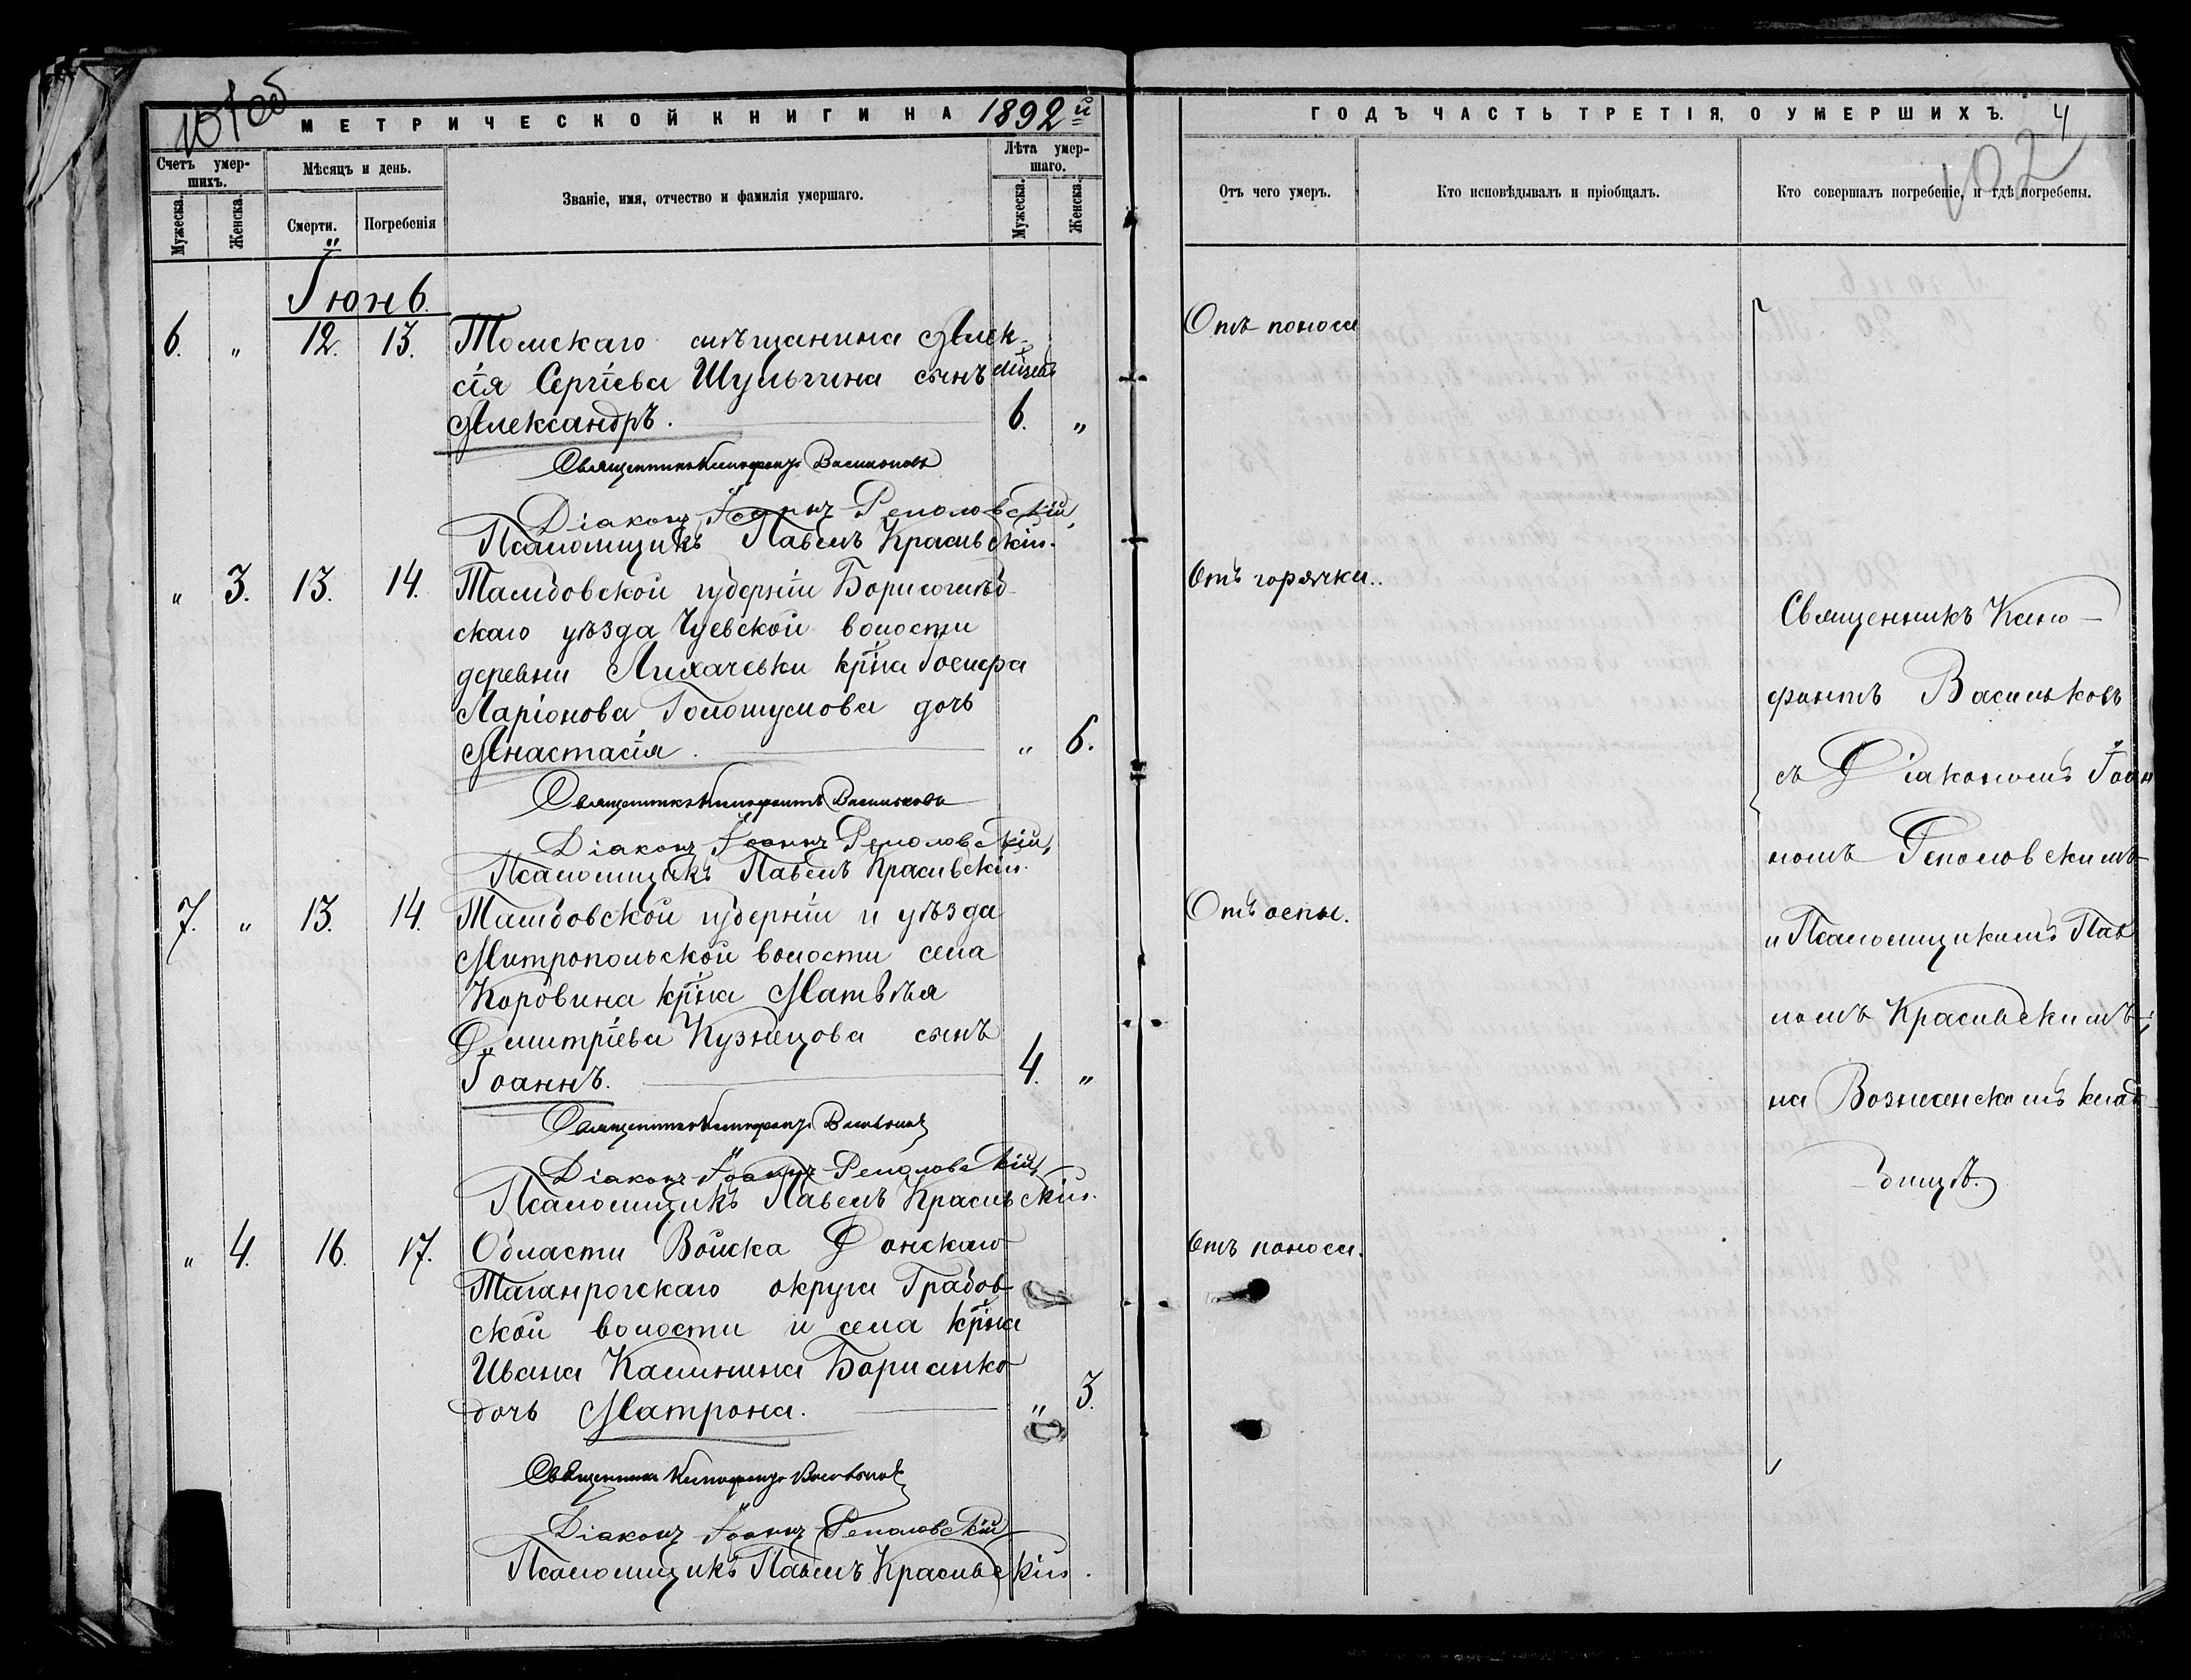 101 об
МЕТРИЧЕСКОЙ КНИГИ НА 1892й
Счетъ умершихъ.
Мужеска.
Женска.
Мѣсяцъ и день.
Смерти.
Погребенія
Званіе, имя, отчество и фамилія умершаго.
Лѣта умершаго.
Мужеска.
Женска.
Іюнь.
6. " 12. 13. Томскаго мѣщанина Алек-
сія Сергіева Шульгина сынъ
Александръ. 6. "
Священникъ Ксенофонтъ Васильковъ
Діаконъ Іоаннъ Реполовскій,
Псаломщикъ Павелъ Красивскій.
" 3. 13. 14. Тамбовской губерніи Борисоглѣб-
скаго уѣзда Чуевской волости
деревни Лихачевки кр͞на
Ларіонова дочь
Анастасія. " 6.
Священникъ Ксенофонтъ Васильковъ
Діаконъ Іоаннъ Реполовскій,
Псаломщикъ Павелъ Красивскій.
7. " 13. 14. Тамбовской губерніи и уѣзда
Митропольской волости села
Коровина кр͞на Матвѣя
Димитріева Кузнецова сынъ
Іоаннъ. 4. "
Священникъ Ксенофонтъ Васильковъ
Діаконъ Іоаннъ Реполовскій,
Псаломщикъ Павелъ Красивскій.
" 4. 16. 17. Области Войска Донскаго
Таганрогскаго округа Грабов-
ской волости и села кр͞на
Ивана Калинина Борисенко
дочь Матрона. " 3.
Священникъ Ксенофонтъ Васильковъ
Діаконъ Іоаннъ Реполовскій
Псаломщикъ Павелъ Красивскій.
ГОДЪ ЧАСТЬ ТРЕТІЯ, О УМЕРШИХЪ. 4
102
Отъ чего умеръ.
Кто исповѣдывалъ и пріобщалъ.
Кто совершалъ погребеніе, и гдѣ погребены.
Отъ поноса
Отъ горячки..
Отъ оспы.
Отъ поноса.
Священникъ Ксено-
фонтъ Васильковъ
съ Діакономъ Іоан
номъ Реполовскимъ
и Псаломщикомъ Пав
ломъ Красивскимъ
на Вознесенскомъ клад-
бищѣ.